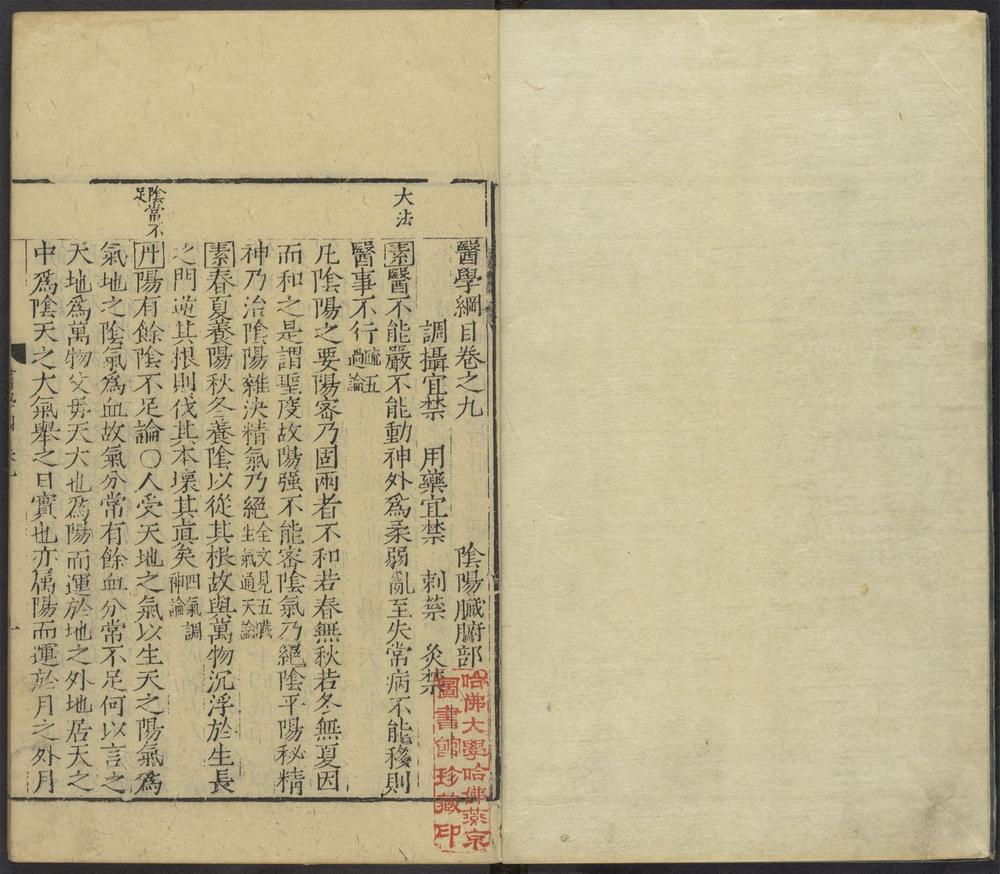 醫學綱目卷之九　陰陽臟腑部
調攝宜禁　用藥宜禁　刺禁　灸禁
大法
素醫不能嚴不能動神外為柔弱亂至失常病不能移則
醫事不行疏五過論
凡陰陽之要陽密乃固兩者不和若春無秋若冬無夏因
而和之是謂聖度故陽强不能密陰氣乃絕陰平陽秘精
神乃治陰陽離決精氣乃絕全文見五臟生氣通天論
素春夏養陽秋冬養陰以從其根故與萬物沉浮於生長
之門逆其根則伐其本壞其眞矣四氣調神論
陰常不足
丹陽有餘陰不足論〇人受天地之氣以生天之陽氣爲
氣地之陰氣爲血故氣分常有餘血分常不足何以言之
天地爲萬物父母天大也爲陽而運於地之外地居天之
中爲陰天之大氣舉之日實也亦屬陽而運於月之外月
一
哈佛大學哈佛燕京
圖書館珍藏印